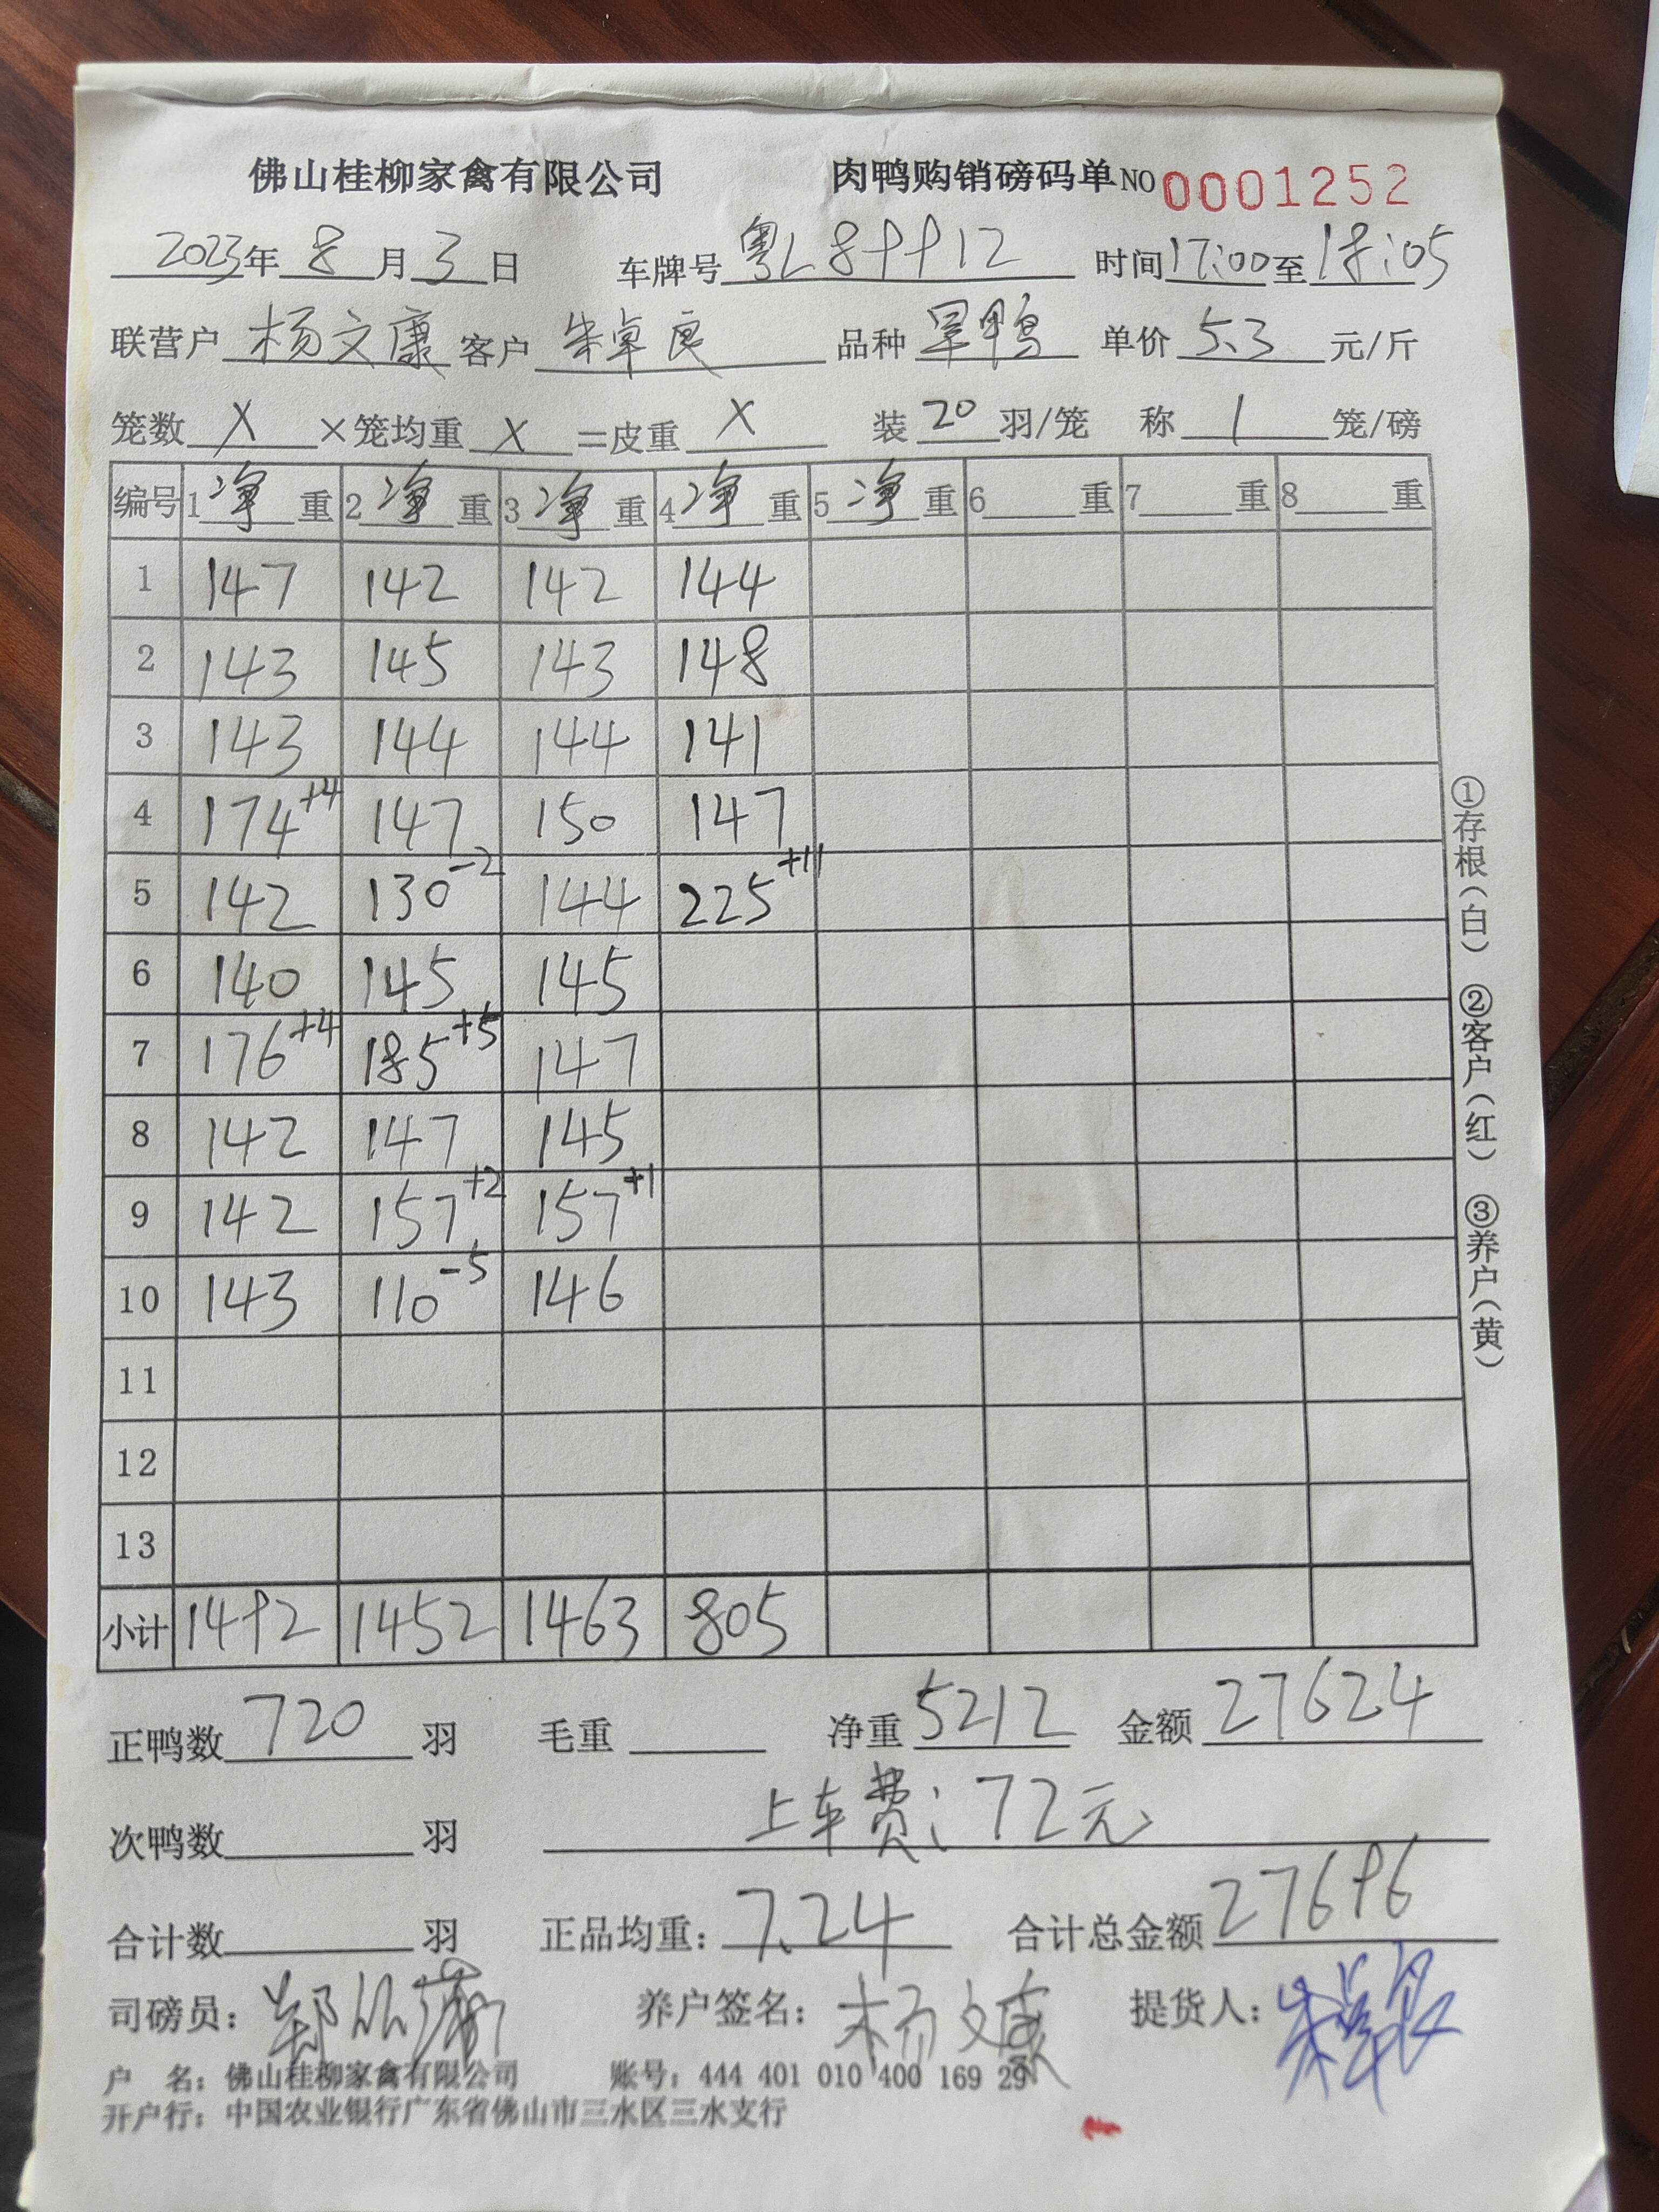 佛山桂柳家禽有限公司 肉鸭购销磅码单 NO 0001252
2023年 8 月 3 日 车牌号 粤L89912 时间 17:00 至 18:05
联营户 杨文康 客户 朱卓良 品种 旱鸭 单价 5.3 元/斤
笼数 X ×笼均重 X =皮重 X 装 20 羽/笼 称 1 笼/磅
编号 1 净 重 2 净 重 3 净 重 4 净 重 5 净 重 6 重 7 重 8 重
1 147 142 142 144
2 143 145 143 148
3 143 144 144 141
4 174+4 147 150 147
5 142 130-2 144 225+11
6 140 145 145
7 176+4 185+5 147
8 142 147 145
9 142 157+2 157+1
10 143 110-5 146
11
12
13
小计 1492 1452 1463 805
正鸭数 720 羽 毛重 净重 5212 金额 27624
次鸭数 羽 上车费: 72元
合计数 羽 正品均重: 7.24 合计总金额 27696
司磅员: 养户签名: 杨文康 提货人: 朱卓良
户 名: 佛山桂柳家禽有限公司 账号: 444 401 010 400 169 29
开户行: 中国农业银行广东省佛山市三水区三水支行
①存根(白) ②客户(红) ③养户(黄)